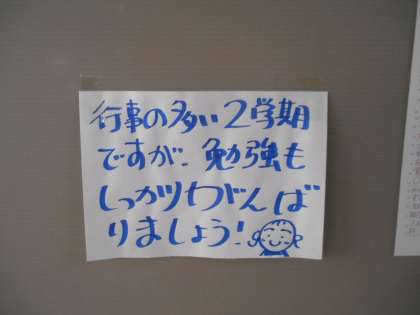 行事の多い2学期
ですが、勉強も
しっかりわがんば
りましょう!